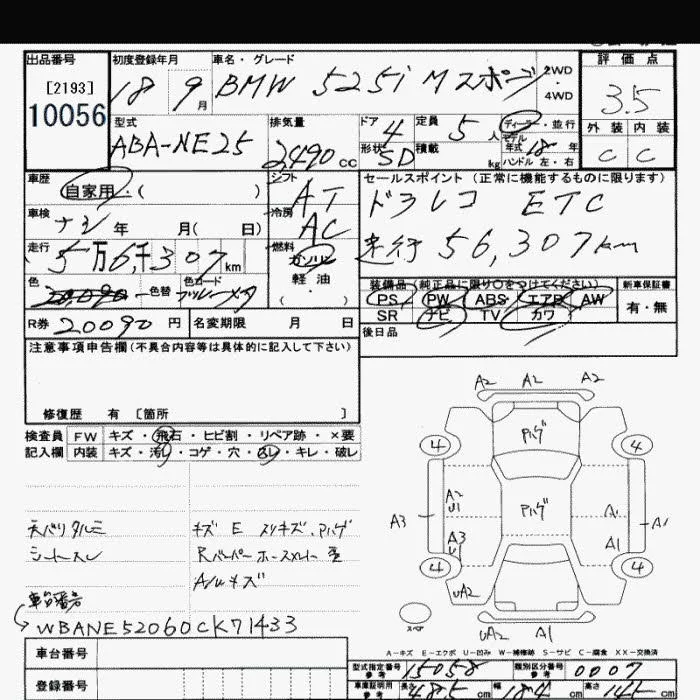 出品番号 初度登録年月 車名・グレード 評価点
[2193]
10056
18 9月 BMW 525i Mスポーツ 2WD 4WD 3.5
型式 排気量 ドア 定員 ディーラー・並行 外装 内装
ABA-NE25 2490cc 4 5人 モデル年式 18年 C C
形状 SD 積載 kg ハンドル 左・右
車歴 シフト セールスポイント (正常に機能するものに限ります)
自家用・( ) AT ドラレコ ETC
車検 冷房
ナシ 年 月( 日) AC 走行 56,307km
走行 燃料
5万6千307km ガソリン
軽・油
( )
色 色替 色コード
20090 ブルーメタ
装備品 (純正品に限り〇をつけてください) 新車保証書
PS PW ABS エアB AW 有・無
SR ナビ TV カワ
R券 20090円 名変期限 月 日 後日品
注意事項申告欄(不具合内容等は具体的に記入して下さい)
修復歴 有 〔箇所 〕
検査員 FW キズ・飛石・ヒビ割・リペア跡・×要
記入欄 内装 キズ・汚レ・コゲ・穴・スレ・キレ・破レ
A2 A2 A2
Pハゲ
4 4
Pハゲ
A3 A2 U1 A1 A1
A3 U1 A1
4 4
UA2
スペア
UA2 A1
天バリタルミ キズ E スリキズ,Pハゲ
シートスレ
A/Wキズ
車台番号
WBANE52060CK71433
A-キズ E-エクボ U-凹み W-補修跡 S-サビ C-腐食 XX-交換済
車台番号 型式指定番号 参考 15058 類別区分番号 参考 0007
登録番号 車庫証明用 参考 長さ 485cm 幅 184cm 高さ 145cm